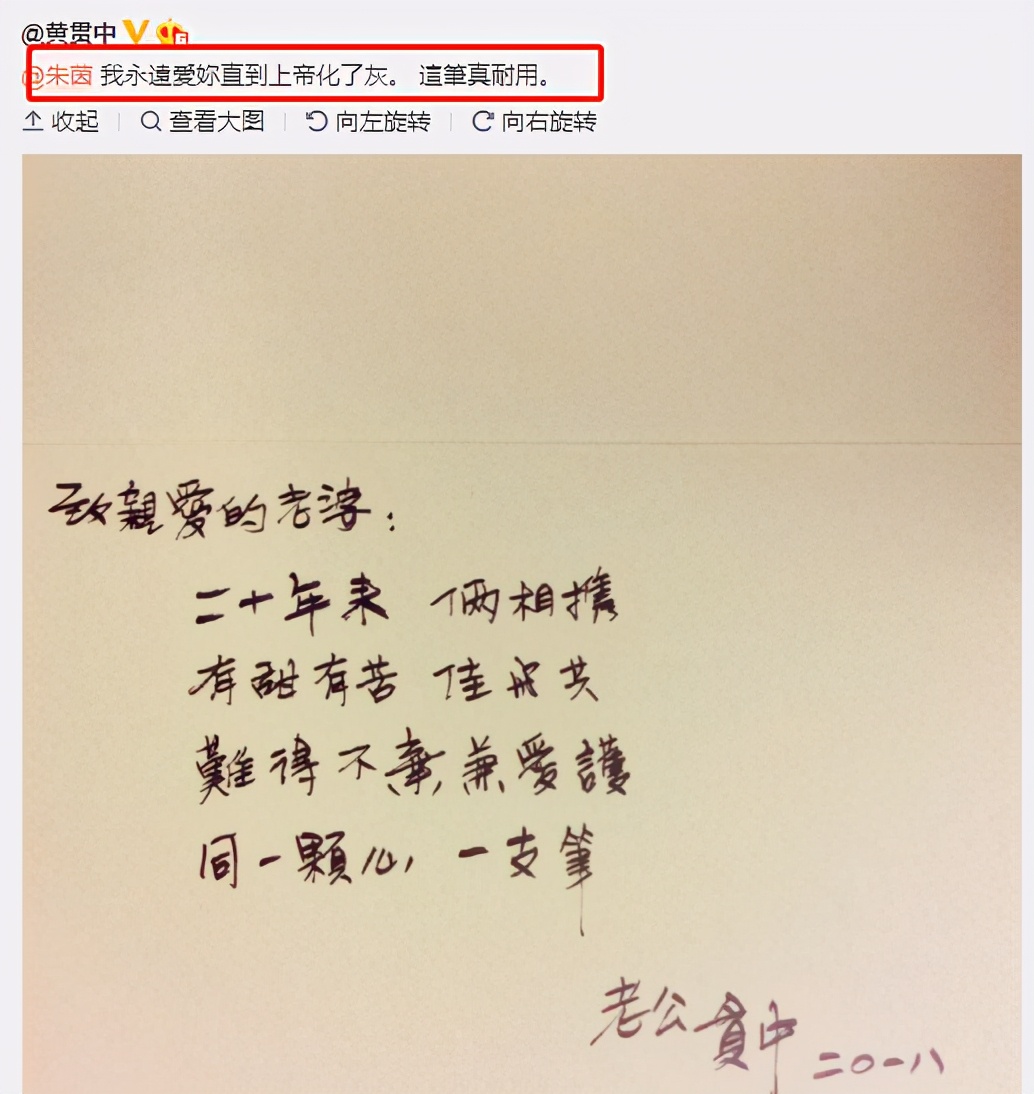 @黄贯中
@朱茵 我永遠爱妳直到上帝化了灰。 這筆真耐用。
收起 查看大图 向左旋转 向右旋转
致親愛的老婆：
二十年来 倆相攜
有甜有苦 佳成共
難得不棄兼愛護
同一顆心 一支筆
老公貫中
二〇一八